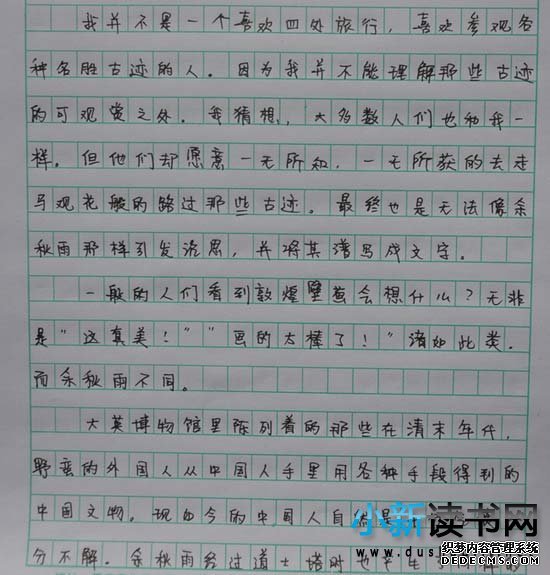 我并不是一个喜欢四处旅行，喜欢参观各
种名胜古迹的人。因为我并不能理解那些古迹
的可观赏之处。我猜想，大多数人们也和我一
样。但他们却愿意一无所知，一无所获的去走
马观花般的路过那些古迹。最终也是无法像余
秋雨那样引发沉思，并将其谱写成文字。
一般的人们看到敦煌壁画会想什么？无非
是"这真美！""画的太棒了！"诸如此类.
而余秋雨不同。
大英博物馆里陈列着的那些在清末年代，
野蛮的外国人从中国人手里用各种手段得到的
中国文物。现如今的中国人自然是
分不解。余秋雨经过道士塔时也产生
小新读书网
内容管理系统
DEDECMS.COM